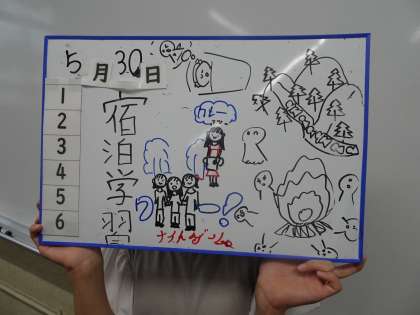 5月30日
1
2
3
4
5
6
宿泊学習
カレー
ワー!?
ナイトゲーム